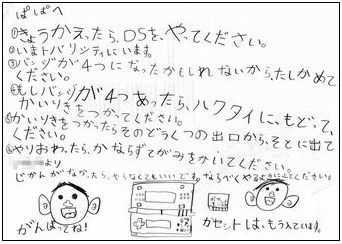 ぱぱへ
①きょうかえったら、DSを、やってください。
②いまトバリシティにいます。
③バッジが4つになったかもしれないから、たしかめて
ください。
④もしバッジが4つあったら、ハクタイに、もどって、
かいりきをつかってください。
⑤かいりきをつかったらそのどうくつの出口から、そとに出て
ください。
⑥やりおわったら、かならずてがみをかいてください。
より
じかんがなかったら、やらなくてもいいです。なるべくやるようにしてください。
がんばってね!
カセットは、もう入ています。